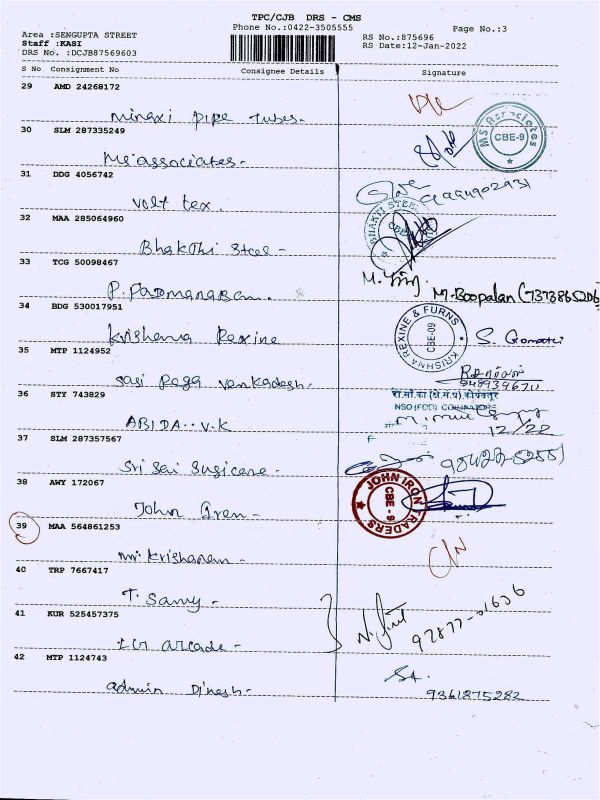 TPC/CJB DRS - CMS
Phone No.:0422-3505555
Page No.:3
Area :SENGUPTA STREET
Staff :KASI
DRS No. :DCJB87569603
RS No.:875696
RS Date:12-Jan-2022
S No Consignment No Consignee Details Signature
29 AMD 24268172
Mingxi pipe tubes-
30 SLM 287335249
MS Associates CBE-9
Ms associates-
31 DDG 4056742
volt tex.
32 MAA 285064960
BHAKTI STEEL
Bhakthi Steel -
33 TCG 50098467
P. Padmanaban.
M. Boopalan
34 BDG 530017951
KRISHNA REXINE & FURNS CBE-09
Krishna Rexine
S. Gomathi
35 MTP 1124952
Sasi Raga venkadesh-
36 STY 743829
NSO (FOD) COIMBATORE
ABIDA..V.K
12/22
37 SLM 287357567
Sri Sai Sugicare-
38 AWY 172067
JOHN IRON TRADERS CBE - 9
John Iren-
39 MAA 564861253
mr. Krishanan-
C/N
40 TRP 7667417
T. Samy-
97877-01636
41 KUR 525457375
arcade-
42 MTP 1124743
admin Dinesh-
9361875282